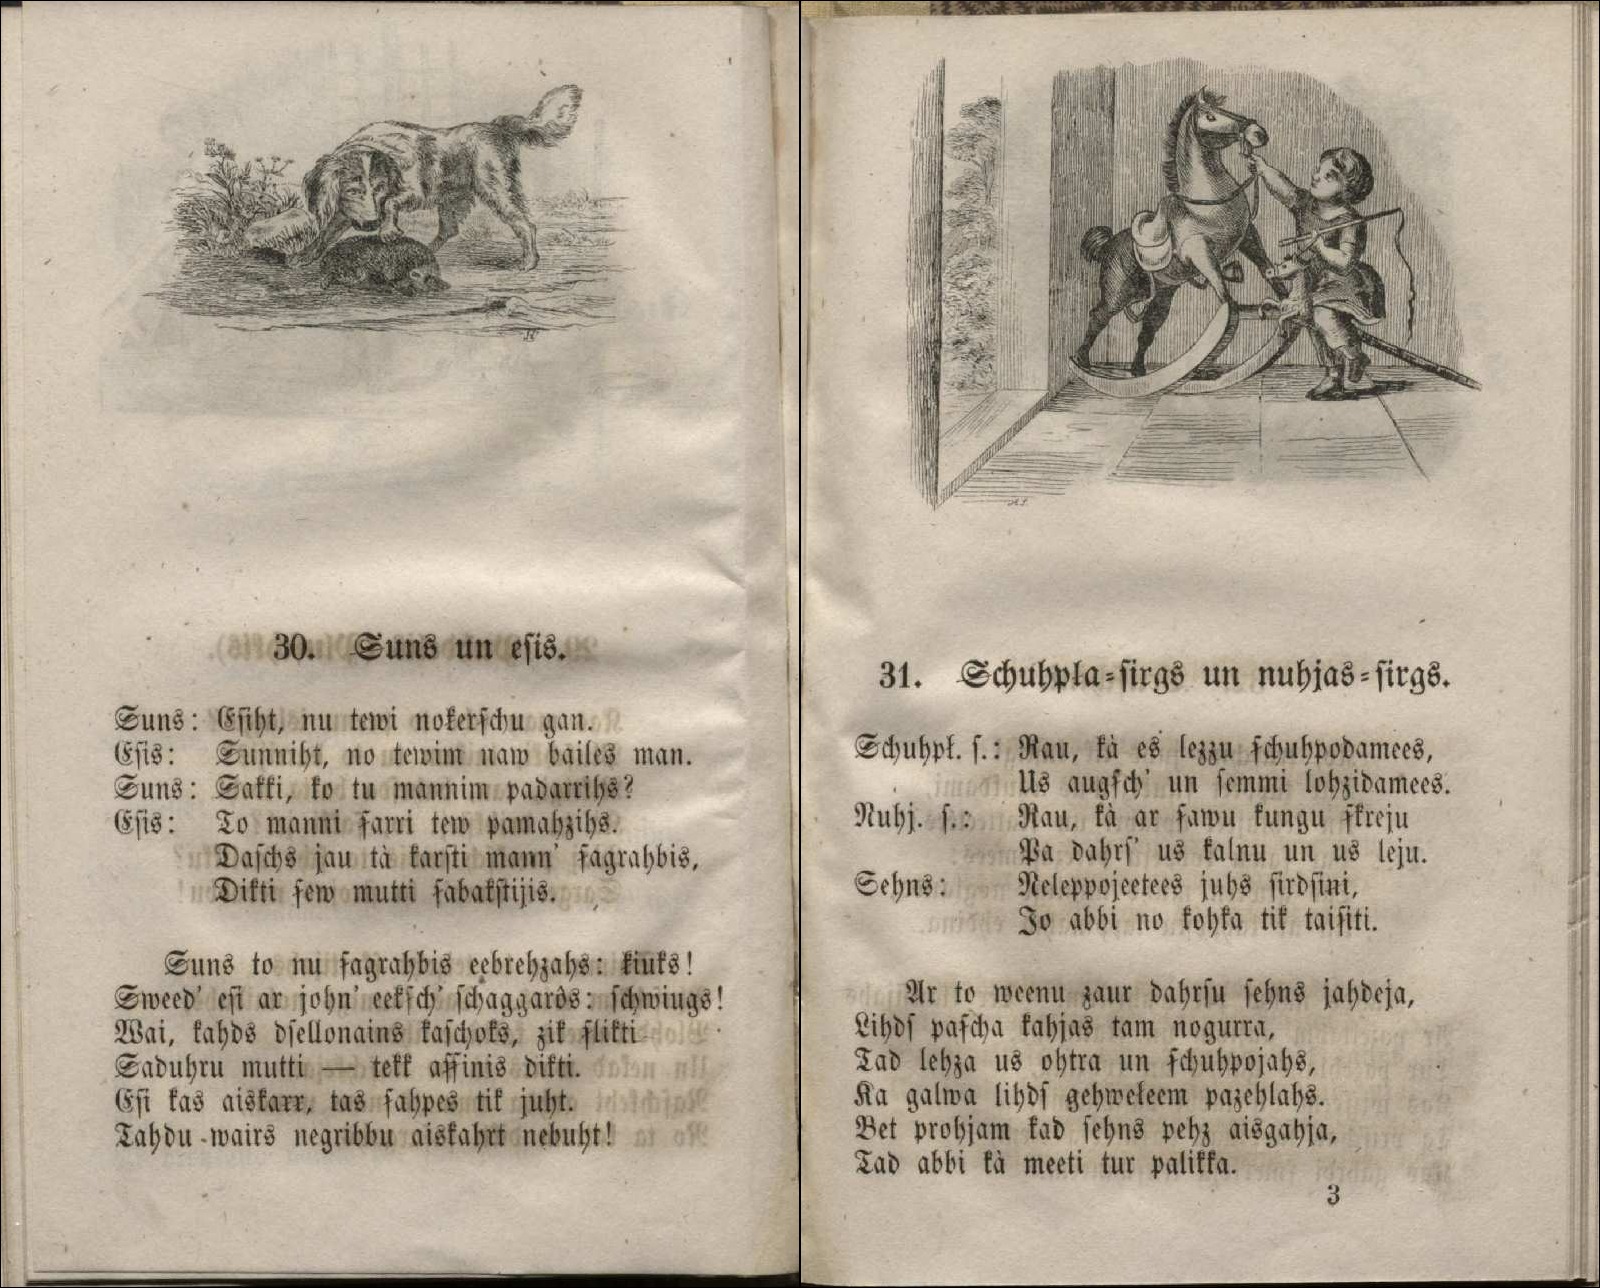 30. Suns un eſis.
Suns: Eſiht, nu tewi nokerſchu gan.
Eſis: Sunniht, no tewim naw bailes man.
Suns: Sakki, ko tu mannim padarrihs?
Eſis: To manni ſarri tew pamahzihs.
Daſchs jau tà karſti mann' ſagrahbis,
Dikti ſew mutti ſabakſtijis.
Suns to nu ſagrahbis eebrehzahs: kiuks!
Sweed' eſi ar john' eekſch' ſchaggarôs: ſchwiugs!
Wai, kahds dſellonains kaſchoks, zik ſlikti
Saduhru mutti — tekk aſſinis dikti.
Eſi kas aiskarr, tas ſahpes tik juht.
Tahdu wairs negribbu aiskahrt nebuht!
31. Schuhpla-ſirgs un nuhjas-ſirgs.
Schuhpl. ſ.: Rau, kà es lezzu ſchuhpodamees,
Us augſch' un ſemmi lohzidamees.
Nuhj. ſ.: Rau, kà ar ſawu kungu ſkreju
Pa dahrſ' us kalnu un us leju.
Sehns: Neleppojeetees juhs ſirdſini,
Jo abbi no kohka tik taiſiti.
Ar to weenu zaur dahrſu ſehns jahdeja,
Lihdſ paſcha kahjas tam nogurra,
Tad lehza us ohtra un ſchuhpojahs,
Ka galwa lihdſ gehweleem pazehlahs.
Bet prohjam kad ſehns pehz aisgahja,
Tad abbi kà meeti tur palikka.
3